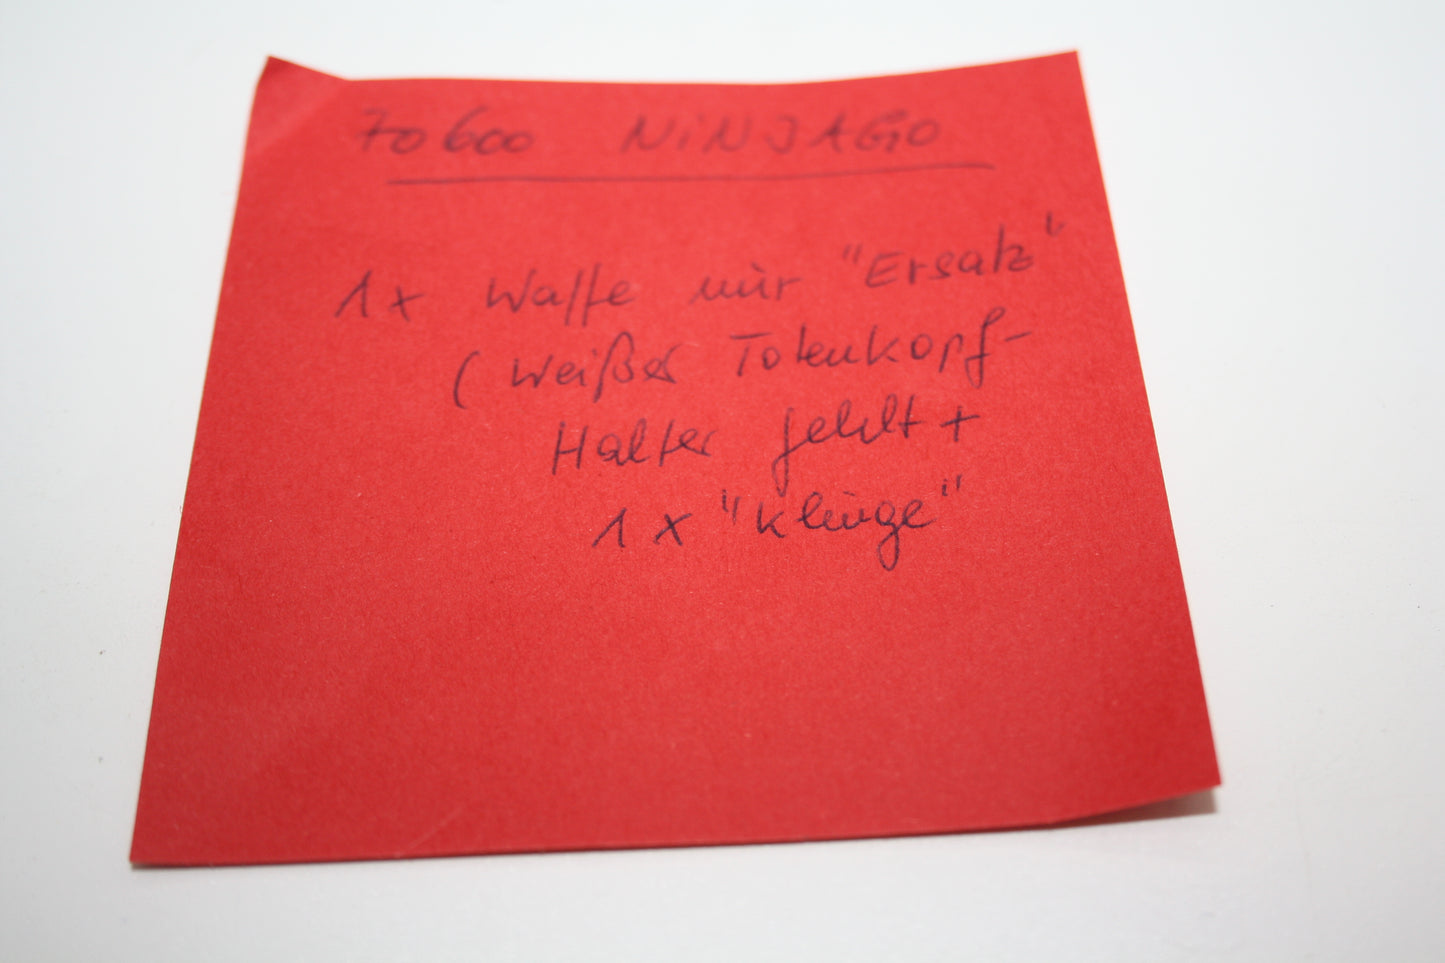 70600 NINJAGO
1x Waffe nur "Ersatz"
(weißer Totenkopf-
Halter fehlt +
1x "Klinge"